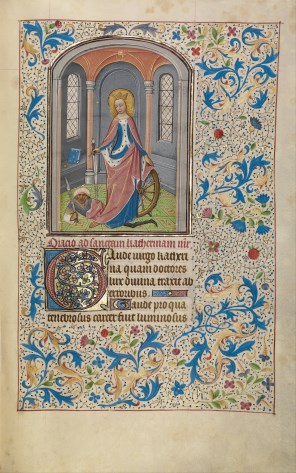 Oracio ad sanctam katherinam
Gaude virgo katheri
na quam doctores
lux divina traxit ab
erroribus
Gaude pro qua
tenebrosus carcer fuit luminosus